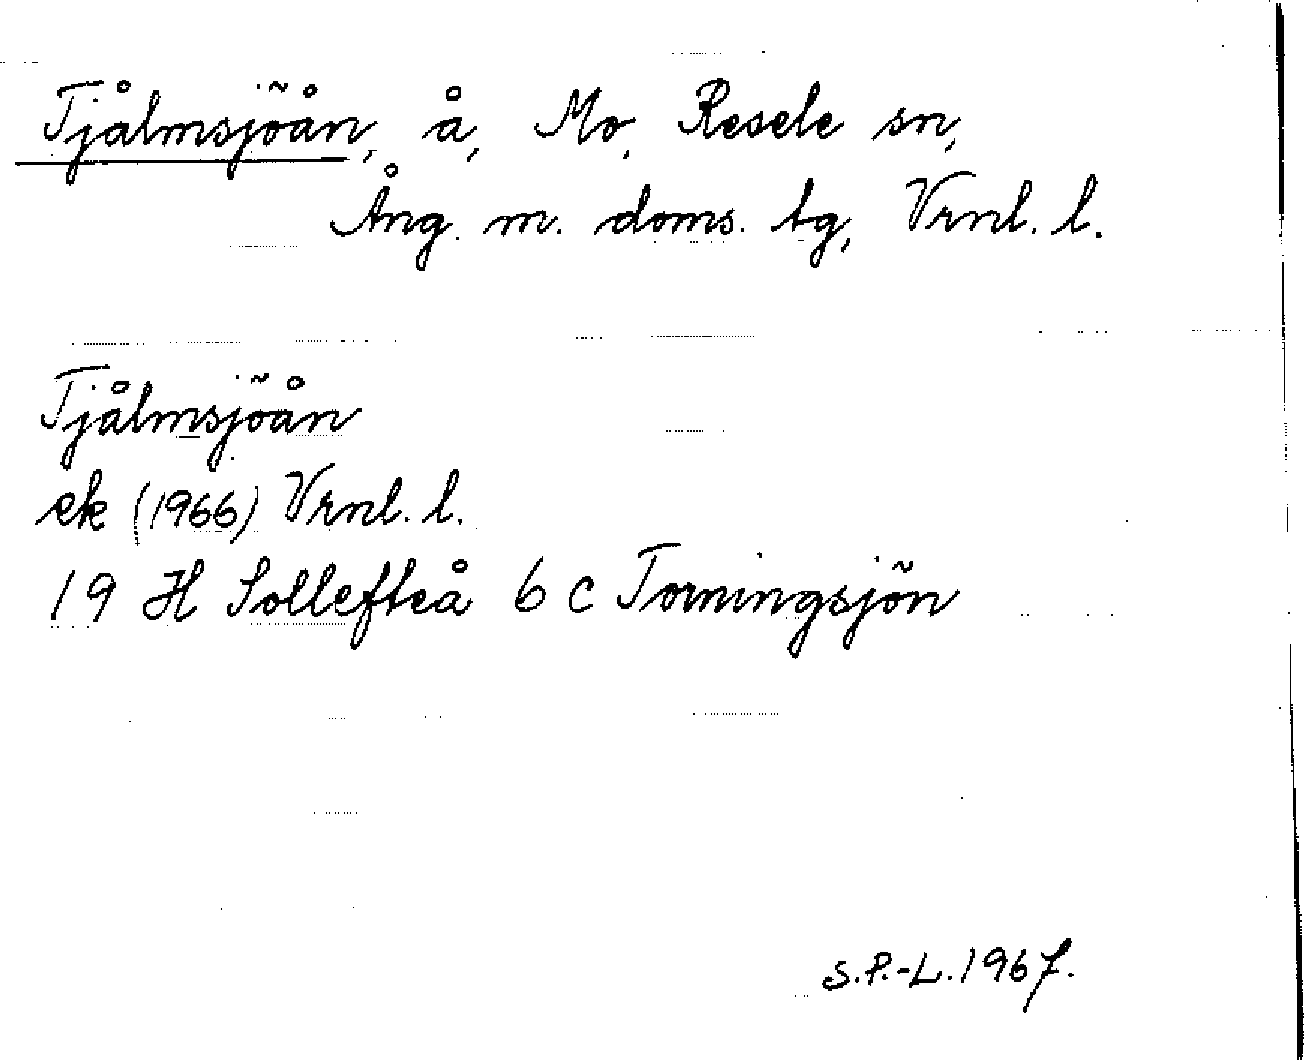 Tjålmsjöån, å, Mo, Resele sn,
Ång. m. doms. tg, Vrnl. l.
Tjålmsjöån
ek (1966) Vrnl. l.
19 H Sollefteå 6 c Torningsjön
S.P.-L. 1967.